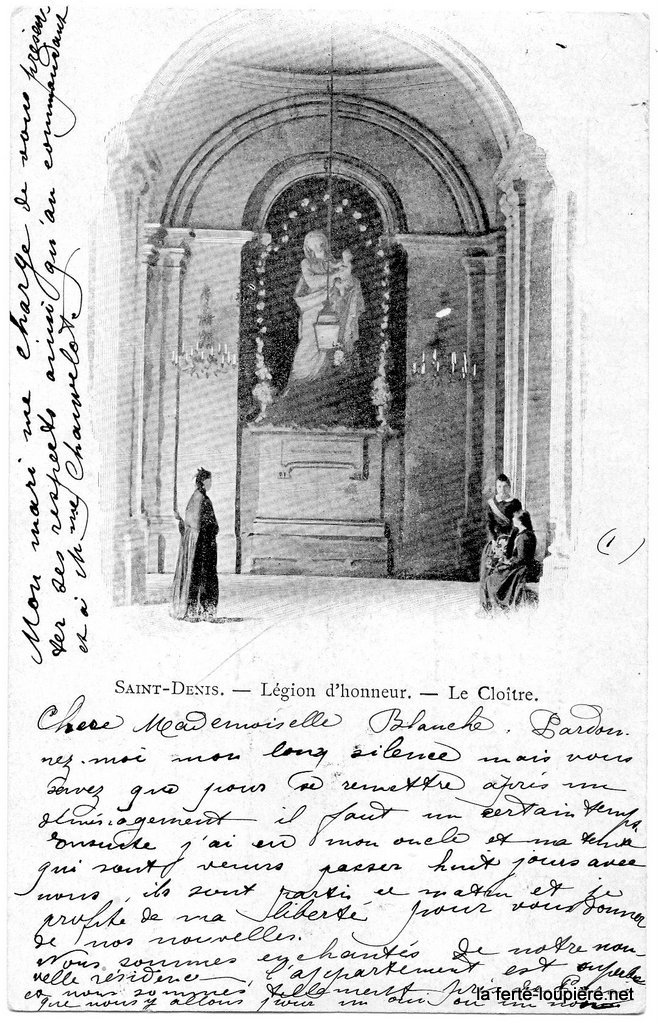 Mon mari me charge de vous présen-
ter ses respects ainsi qu'au commandant
et à Mme Chauvelot.
(1)
SAINT-DENIS. — Légion d'honneur. — Le Cloître.
Chere Mademoiselle Blanche, Pardon-
nez-moi mon long silence mais vous
savez que pour se remettre après un
déménagement il faut un certain temps,
ensuite j'ai eu mon oncle et ma tante
qui sont venus passer huit jours avec
nous, ils sont partis ce matin et je
profite de ma liberté pour vous donner
de nos nouvelles.
Nous sommes enchantés de notre nou-
velle résidence, l'appartement est superbe
et nous sommes tellement près de Paris
que nous y allons pour un oui ou un non
la ferte-loupière.net